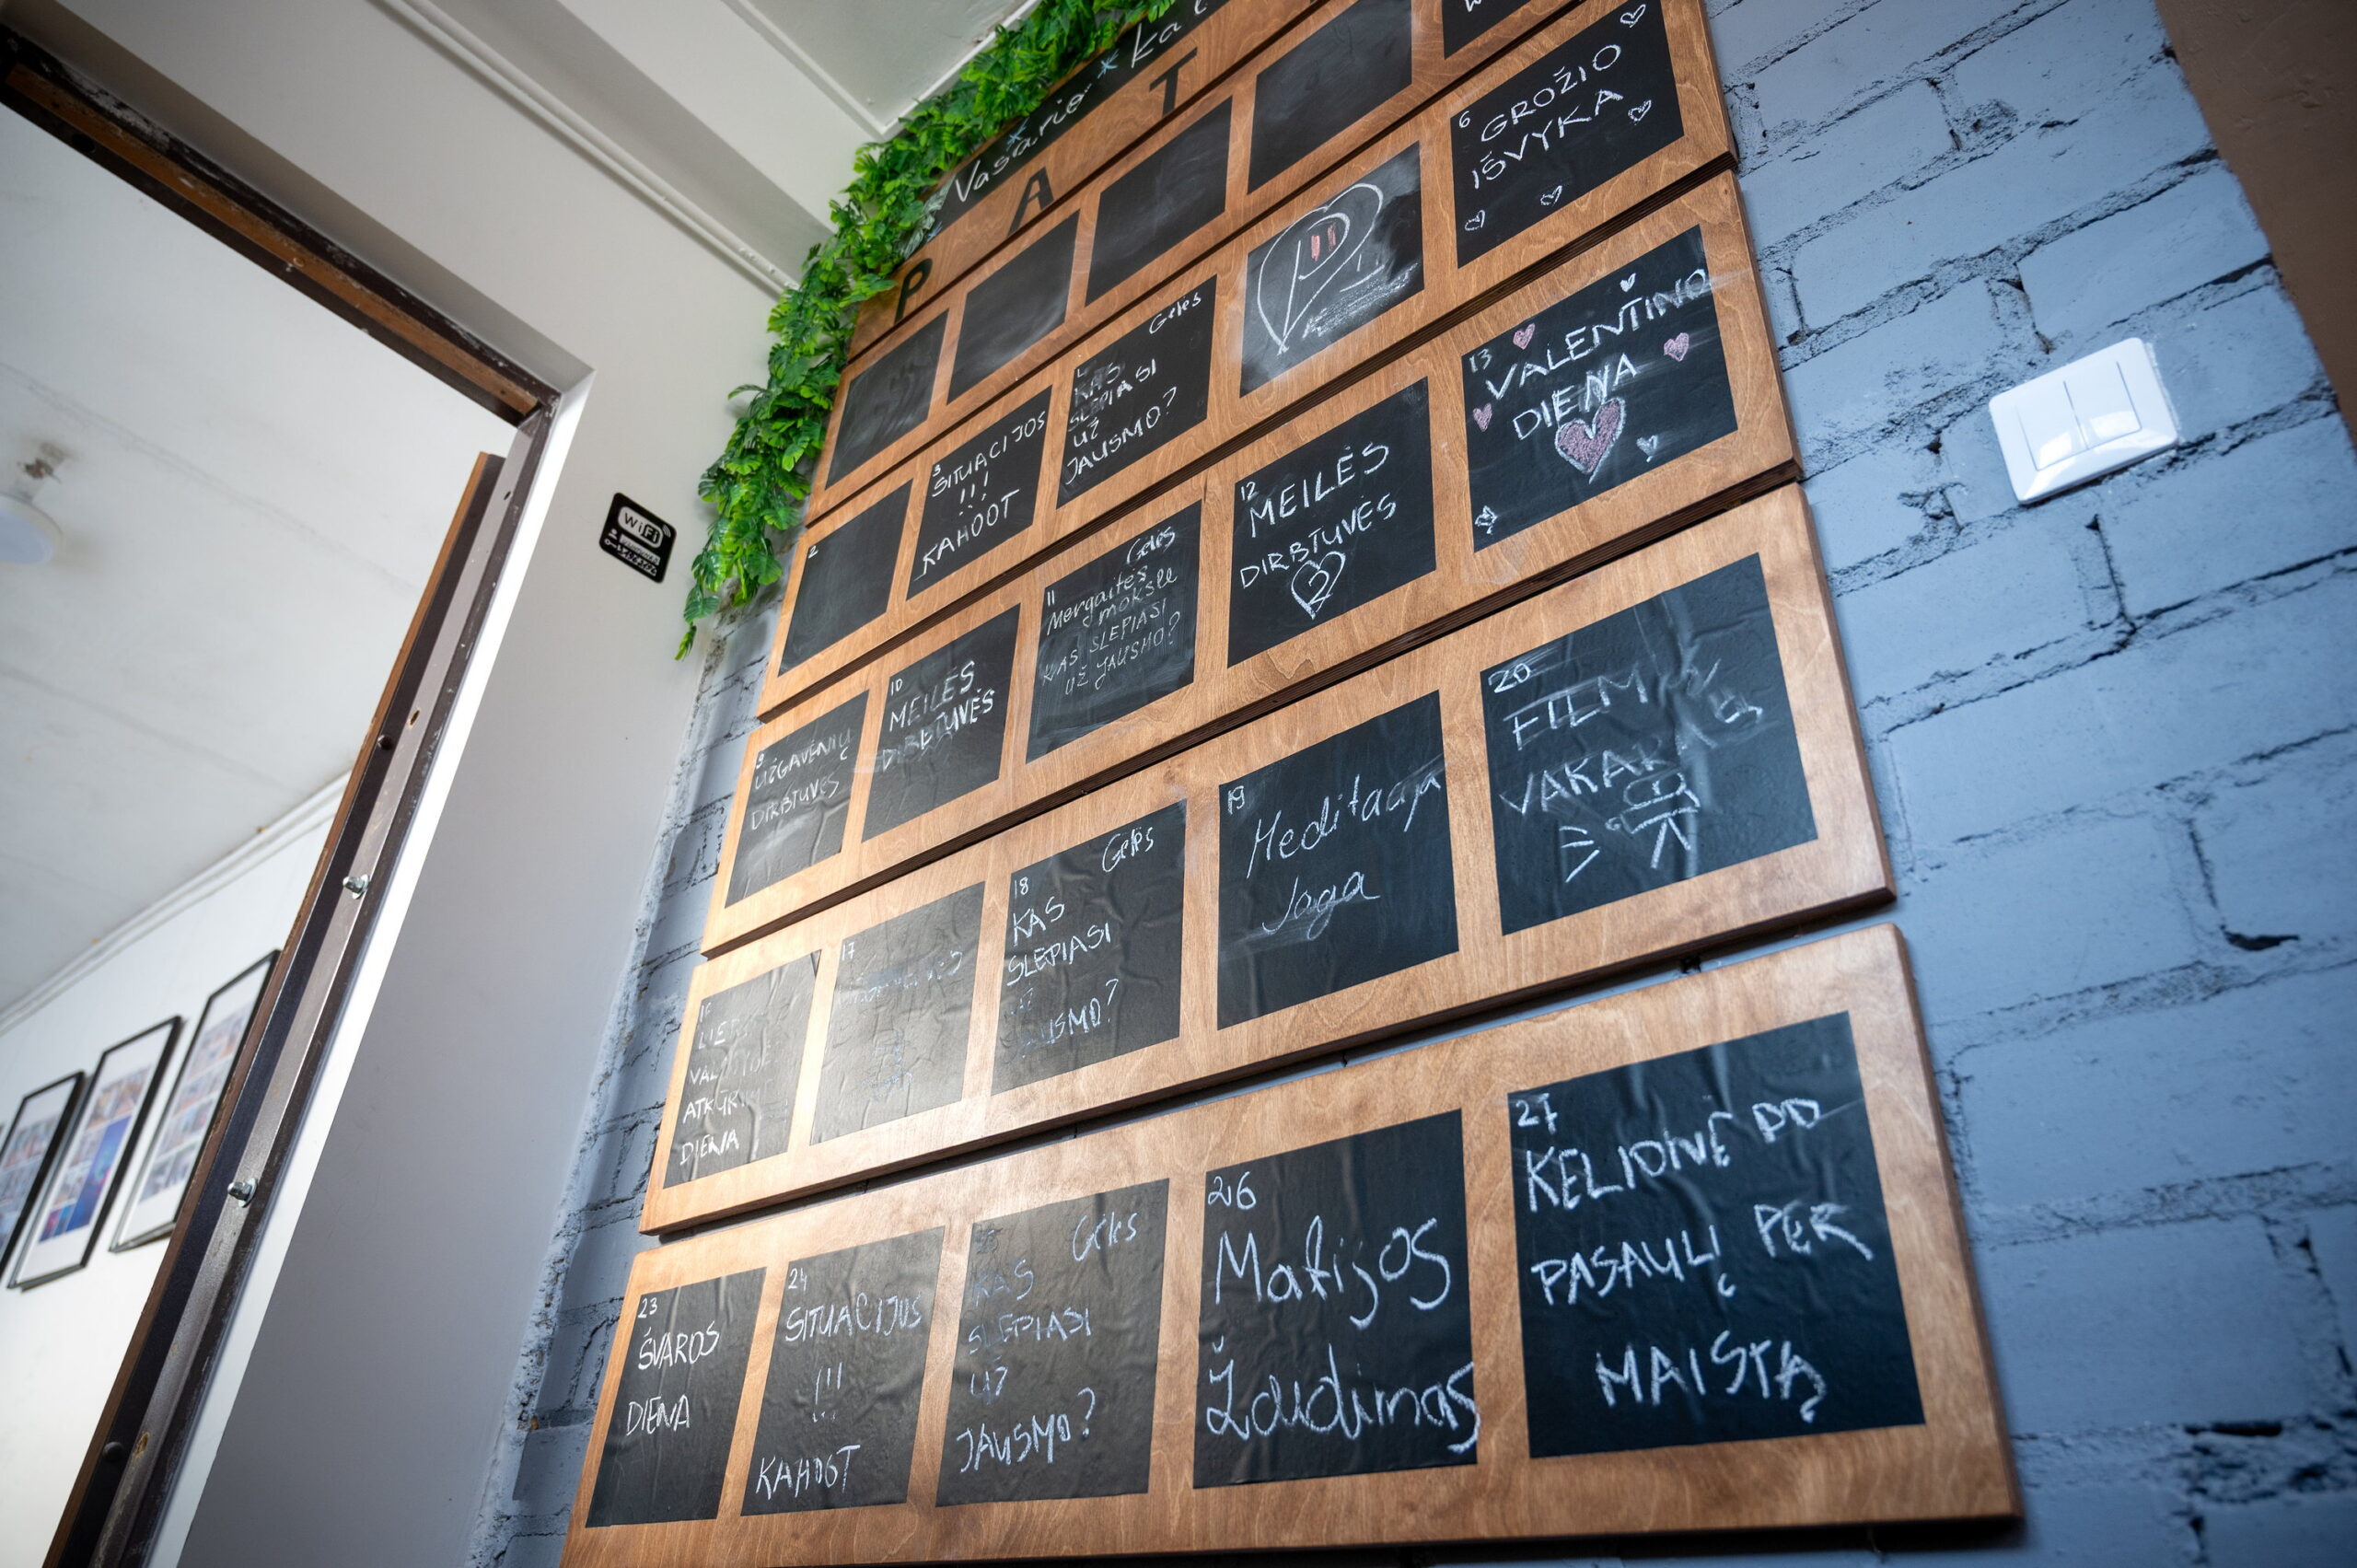 Vasario
P A T
6
GROŽIO
IŠVYKA
2
3
SITUACIJOS
!!!
KAHOOT
Gelės
KAS
SLEPIASI
UŽ
JAUSMO?
9
UŽGAVĖNIŲ
DIRBTUVĖS
10
MEILĖS
DIRBTUVĖS
11
Gėlės
Mergaitės
moksle
KAS SLEPIASI
UŽ JAUSMO?
12
MEILĖS
DIRBTUVĖS
2
13
VALENTINO
DIENA
16
ATKŪRIMO
DIENA
17
18
Gėlės
KAS
SLEPIASI
UŽ
JAUSMO?
19
Meditacija
Joga
20
FILMŲ
VAKARAS
23
ŠVAROS
DIENA
24
SITUACIJOS
!!!
KAHOOT
Gėlės
KAS
SLEPIASI
UŽ
JAUSMO?
26
Matijos
Žaidimas
27
KELIONĖ PO
PASAULĮ PER
MAISTĄ
WiFi